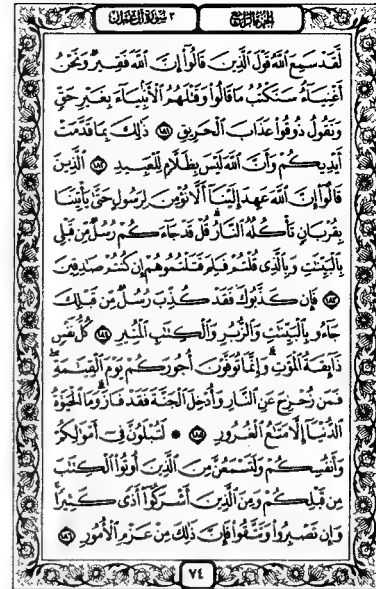 الجزء الرابع ٣ سورة آل عمران
لَّقَدْ سَمِعَ ٱللَّهُ قَوْلَ ٱلَّذِينَ قَالُوٓا۟ إِنَّ ٱللَّهَ فَقِيرٌ وَنَحْنُ
أَغْنِيَآءُ سَنَكْتُبُ مَا قَالُوا۟ وَقَتْلَهُمُ ٱلْأَنۢبِيَآءَ بِغَيْرِ حَقٍّ
وَنَقُولُ ذُوقُوا۟ عَذَابَ ٱلْحَرِيقِ ١٨١ ذَٰلِكَ بِمَا قَدَّمَتْ
أَيْدِيكُمْ وَأَنَّ ٱللَّهَ لَيْسَ بِظَلَّامٍ لِّلْعَبِيدِ ١٨٢ ٱلَّذِينَ
قَالُوٓا۟ إِنَّ ٱللَّهَ عَهِدَ إِلَيْنَآ أَلَّا نُؤْمِنَ لِرَسُولٍ حَتَّىٰ يَأْتِيَنَا
بِقُرْبَانٍ تَأْكُلُهُ ٱلنَّارُ ۗ قُلْ قَدْ جَآءَكُمْ رُسُلٌ مِّن قَبْلِى
بِٱلْبَيِّنَٰتِ وَبِٱلَّذِى قُلْتُمْ فَلِمَ قَتَلْتُمُوهُمْ إِن كُنتُمْ صَٰدِقِينَ
١٨٣ فَإِن كَذَّبُوكَ فَقَدْ كُذِّبَ رُسُلٌ مِّن قَبْلِكَ
جَآءُو بِٱلْبَيِّنَٰتِ وَٱلزُّبُرِ وَٱلْكِتَٰبِ ٱلْمُنِيرِ ١٨٤ كُلُّ نَفْسٍ
ذَآئِقَةُ ٱلْمَوْتِ ۗ وَإِنَّمَا تُوَفَّوْنَ أُجُورَكُمْ يَوْمَ ٱلْقِيَٰمَةِ ۖ
فَمَن زُحْزِحَ عَنِ ٱلنَّارِ وَأُدْخِلَ ٱلْجَنَّةَ فَقَدْ فَازَ ۗ وَمَا ٱلْحَيَوٰةُ
ٱلدُّنْيَآ إِلَّا مَتَٰعُ ٱلْغُرُورِ ١٨٥ * لَتُبْلَوُنَّ فِىٓ أَمْوَٰلِكُمْ
وَأَنفُسِكُمْ وَلَتَسْمَعُنَّ مِنَ ٱلَّذِينَ أُوتُوا۟ ٱلْكِتَٰبَ
مِن قَبْلِكُمْ وَمِنَ ٱلَّذِينَ أَشْرَكُوٓا۟ أَذًى كَثِيرًا ۚ
وَإِن تَصْبِرُوا۟ وَتَتَّقُوا۟ فَإِنَّ ذَٰلِكَ مِنْ عَزْمِ ٱلْأُمُورِ ١٨٦
٧٤